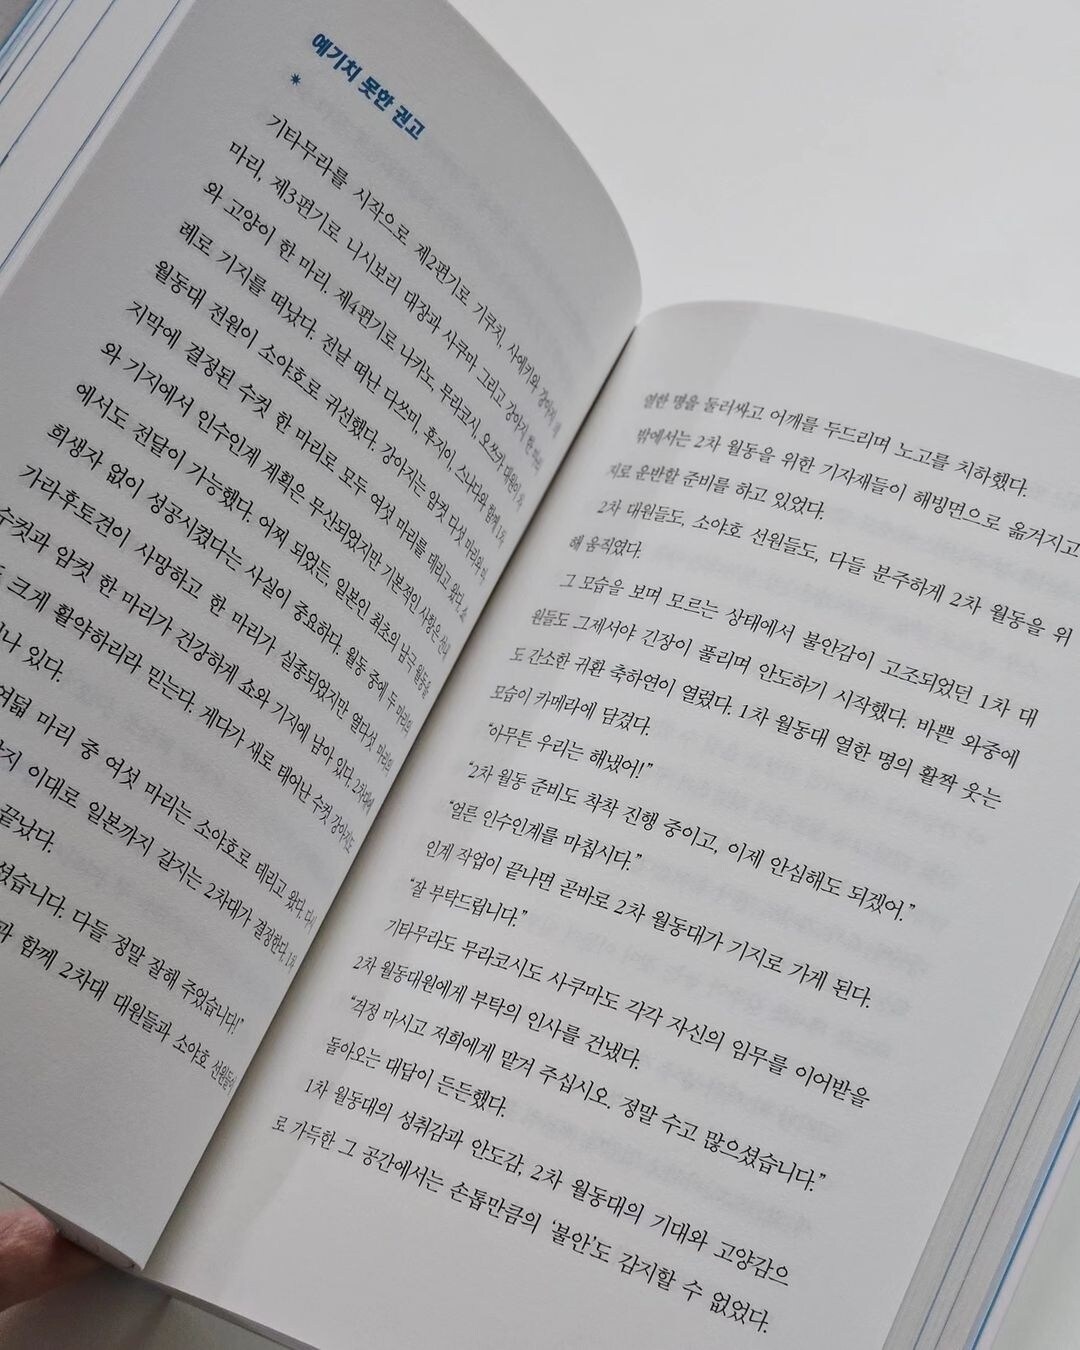 예기치 못한 권고
기타무라를 시작으로 제2편기로 기쿠치, 사에키와 강아지 세
마리, 제3편기로 니시보리 대장과 사쿠마 그리고 강아지 한 마리
와 고양이 한 마리. 제4편기로 나카노, 무라코시, 오쓰카 대원이 차
례로 기지를 떠났다. 전날 떠난 다쓰미, 후지이, 스나다와 함께 1차
월동대 전원이 소야호로 귀선했다. 강아지는 암컷 다섯 마리와 마
지막에 결정된 수컷 한 마리로 모두 여섯 마리를 데리고 왔다. 쇼
와 기지에서 인수인계 계획은 무산되었지만 기본적인 사항은 선내
에서도 전달이 가능했다. 어찌 되었든, 일본인 최초의 남극 월동을
희생자 없이 성공시켰다는 사실이 중요하다. 월동 중에 두 마리의
가라후토견이 사망하고 한 마리가 실종되었지만 열다섯 마리의
수컷과 암컷 한 마리가 건강하게 쇼와 기지에 남아 있다. 2차대에
크게 활약하리라 믿는다. 게다가 새로 태어난 수컷 강아지도
나 있다.
여덟 마리 중 여섯 마리는 소야호로 데리고 왔다. 다시
이대로 일본까지 갈지는 2차대가 결정한다. 1차
끝났다.
셨습니다. 다들 정말 잘해 주었습니다!"
함께 2차대 대원들과 소야호 선원들이
열한 명을 둘러싸고 어깨를 두드리며 노고를 치하했다.
밖에서는 2차 월동을 위한 기자재들이 해빙면으로 옮겨지고
지로 운반할 준비를 하고 있었다.
2차 대원들도, 소야호 선원들도, 다들 분주하게 2차 월동을 위
해 움직였다.
그 모습을 보며 모르는 상태에서 불안감이 고조되었던 1차 대
원들도 그제서야 긴장이 풀리며 안도하기 시작했다. 바쁜 와중에
도 간소한 귀환 축하연이 열렸다. 1차 월동대 열한 명의 활짝 웃는
모습이 카메라에 담겼다.
"아무튼 우리는 해냈어!"
"2차 월동 준비도 착착 진행 중이고, 이제 안심해도 되겠어."
"얼른 인수인계를 마칩시다."
인계 작업이 끝나면 곧바로 2차 월동대가 기지로 가게 된다.
"잘 부탁드립니다."
기타무라도 무라코시도 사쿠마도 각각 자신의 임무를 이어받을
2차 월동대원에게 부탁의 인사를 건넸다.
"걱정 마시고 저희에게 맡겨 주십시오. 정말 수고 많으셨습니다."
돌아오는 대답이 든든했다.
1차 월동대의 성취감과 안도감, 2차 월동대의 기대와 고양감으
로 가득한 그 공간에서는 손톱만큼의 '불안'도 감지할 수 없었다.